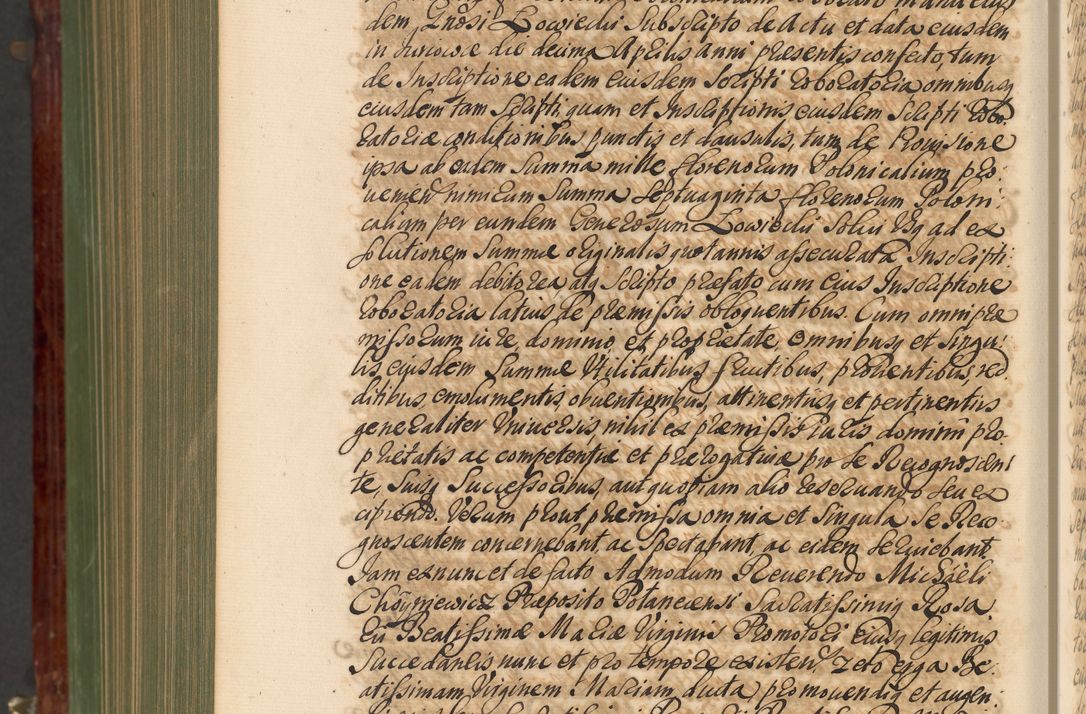 dem Gnosi Łowiecki Subscripto de Actu et data eiusdem
in Juncowce die decima Aprilis anni præsentis confecto, tum
de Inscriptione eadem eiusdem Scripti roboratoria omnibusq
eiusdem tam Scripti quam et Inscriptionis eiusdem Scripti Robo:
ratoriæ conditionibus, punctis et clausulis, tum de Provisione
ipsa ab eadem Summa mille florenorum Polonicalium pro:
venien nimirum Summa Septuaginta florenorum Poloni:
calium per eundem Generosum Łowiecki solvi usq ad ex
solutionem Summæ originalis quotannis assecurata Inscripti:
one eadem debitorea atq Scripto præfato cum eius Inscriptione
roboratoria latius de præmissis obloquentibus. Cum omni præ
missorum iure dominio et proprietate omnibusq et singu:
lis eiusdem Summæ Utilitatibus fructibus, provientibus, red
ditibus emolumentis, obventionibus, attinentiisq et pertinentiis
generaliter Universis nihil ex præmissis iuris dominii pro:
prietatis ac competentiæ et prærogativæ pro se Recognoscen
te, Suisq Successoribus, aut quopiam alio reservando seu ex
cipiendo. Verum prout præmissa omnia et singula se Reco:
gnoscentem concernebant, ac Spectabant, ac eidem serviebant.
Jam ex nunc et de facto Admodum Reverendo Michaeli
Choyniewicz Præposito Potanecensi Sacratissimiq Rosa
rii Beatissimæ Mariæ Virginis Promotori eiusq legitimis
Succedaneis nunc et pro tempore existen zelo erga Be:
atissimam Virginem Mariam ducta promovendiq et augen: